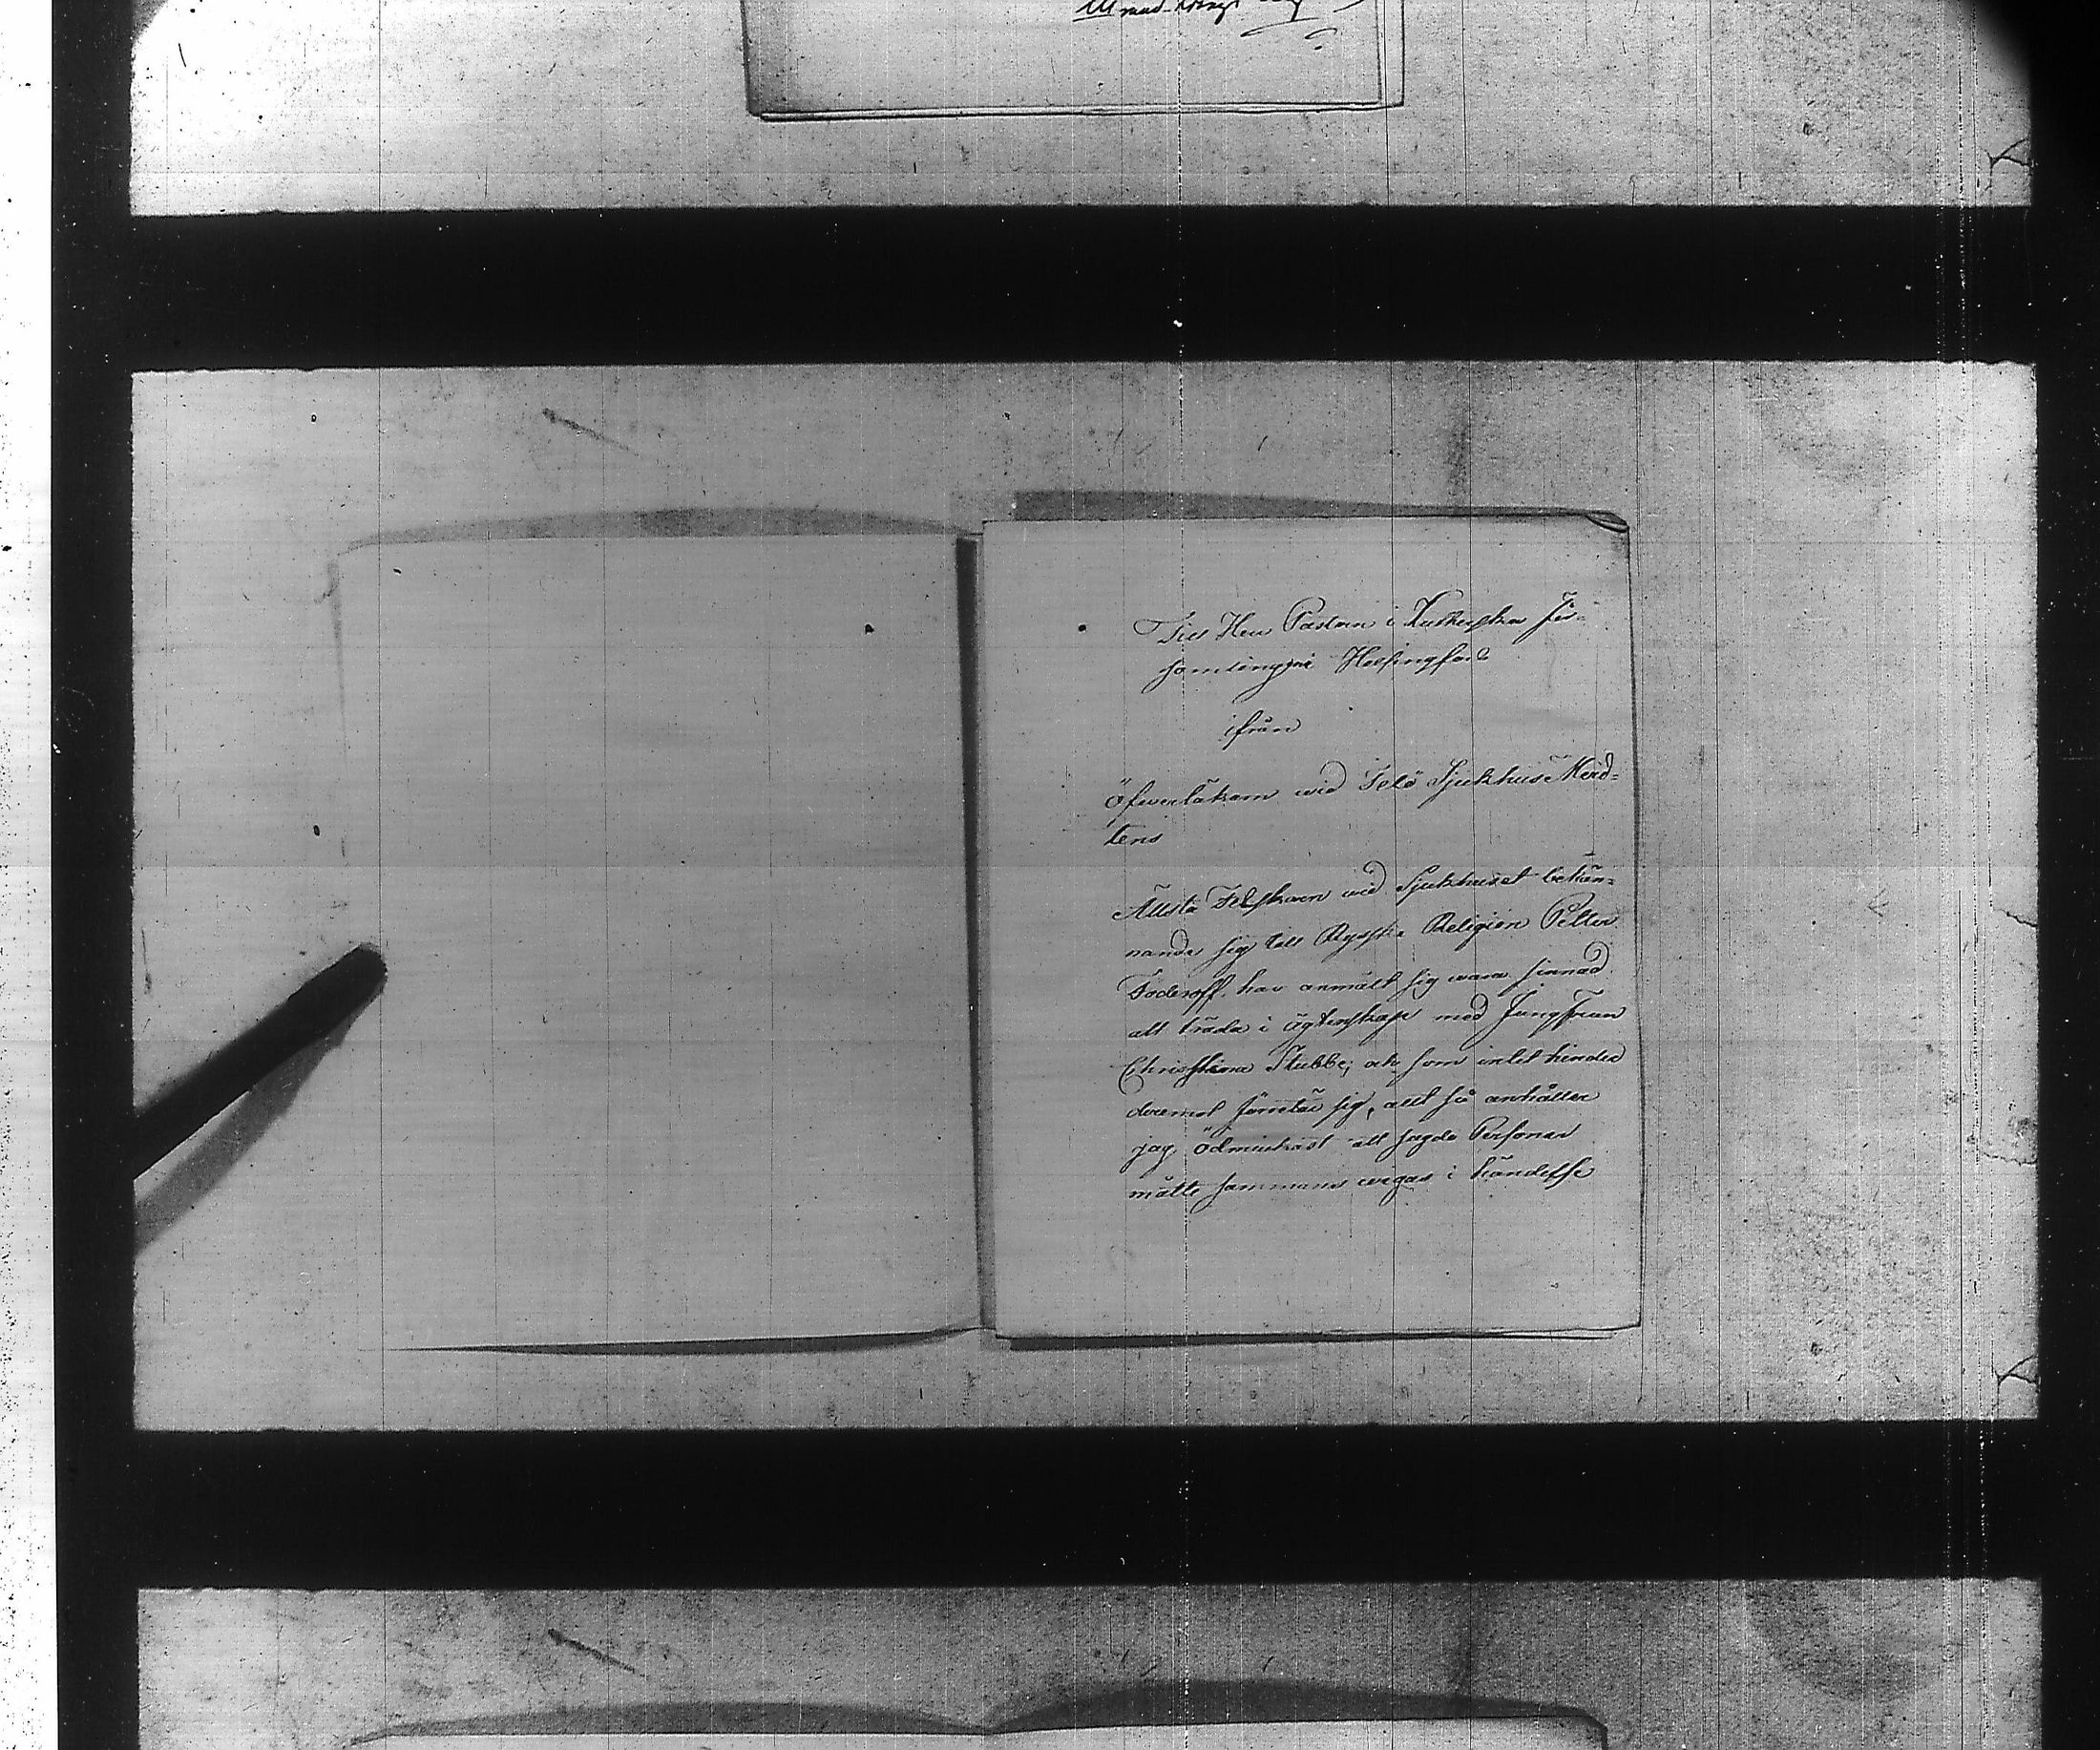 Till Herr Pastorn i Lutherska För-
samlingen i Helsingfors
ifrån
Öfverläkarn wid Telö Sjukhus Merd-
tens
Ällsta Feltskaern wid Sjukhuset bekän-
nande sig till Rysska Religion Petter
Foderoff, har anmält sig wara sinnad
att träda i ägtenskap med Jungfrun
Christina Stubbe; och som intet hinder
deremot förretäe sig, allt så anhåller
jag ödmiukast att sagde Personer
måtte sammans wegas i händelse